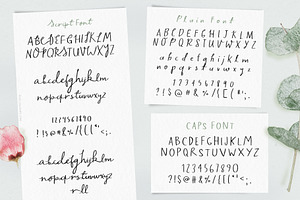 Script Font
ABCDEFGHIJKLM
NOPQRSTUVWXYZ
abcdefghijklm
nopqrstuvwxyz
1234567890
?!$@#&%/{[("<;.
abcdefghijklm
nopqrstuvwxyz
r ll
Plain Font
ABCDEFGHIJKLM
NOPQRSTUVWXYZ
abcdefghijklm
nopqrstuvwxyz
1234567890
?!$@#&%/{[("<;.
CAPS FONT
ABCDEFGHIJKLM
NOPQRSTUVWXYZ
1234567890
?!$@#&%/{[("<;.